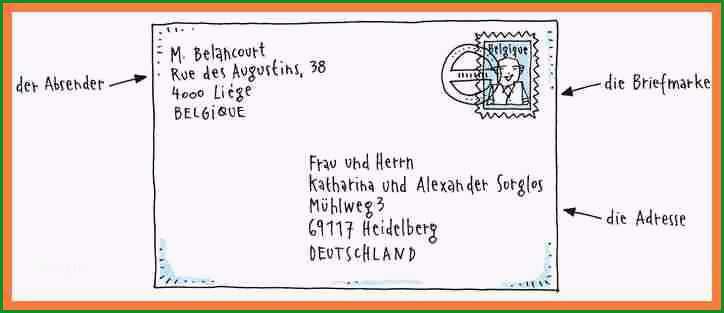 der Absender
M. Belancourt
Rue des Augustins, 38
4000 Liége
BELGIQUE
Belgique
die Briefmarke
Frau und Herrn
Katharina und Alexander Sorglos
Mühlweg 3
69117 Heidelberg
DEUTSCHLAND
die Adresse